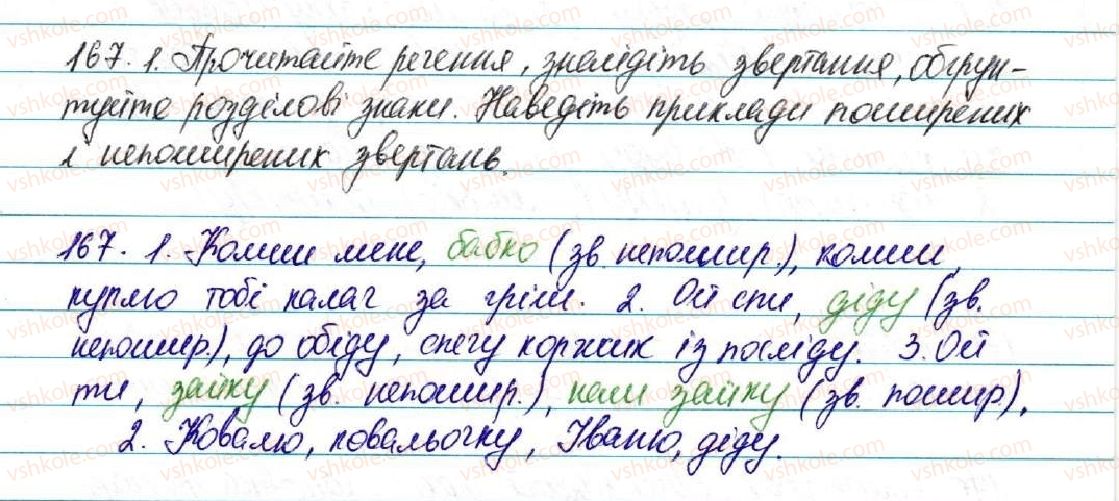 167. 1. Прочитайте речення, знайдіть звертання, обґрун-
туйте розділові знаки. Наведіть приклади поширених
і непоширених звертань.
167. 1. Колиш мене, бабко (зв. непошир.), колиш,
куплю тобі калач за гріш. 2. Ой спи, діду (зв.
непошир.), до обіду, спечу коржик із посліду. 3. Ой
ти, зайку (зв. непошир.), наш зайку (зв. пошир.),
2. Ковалю, ковальочку, Іваню, діду.